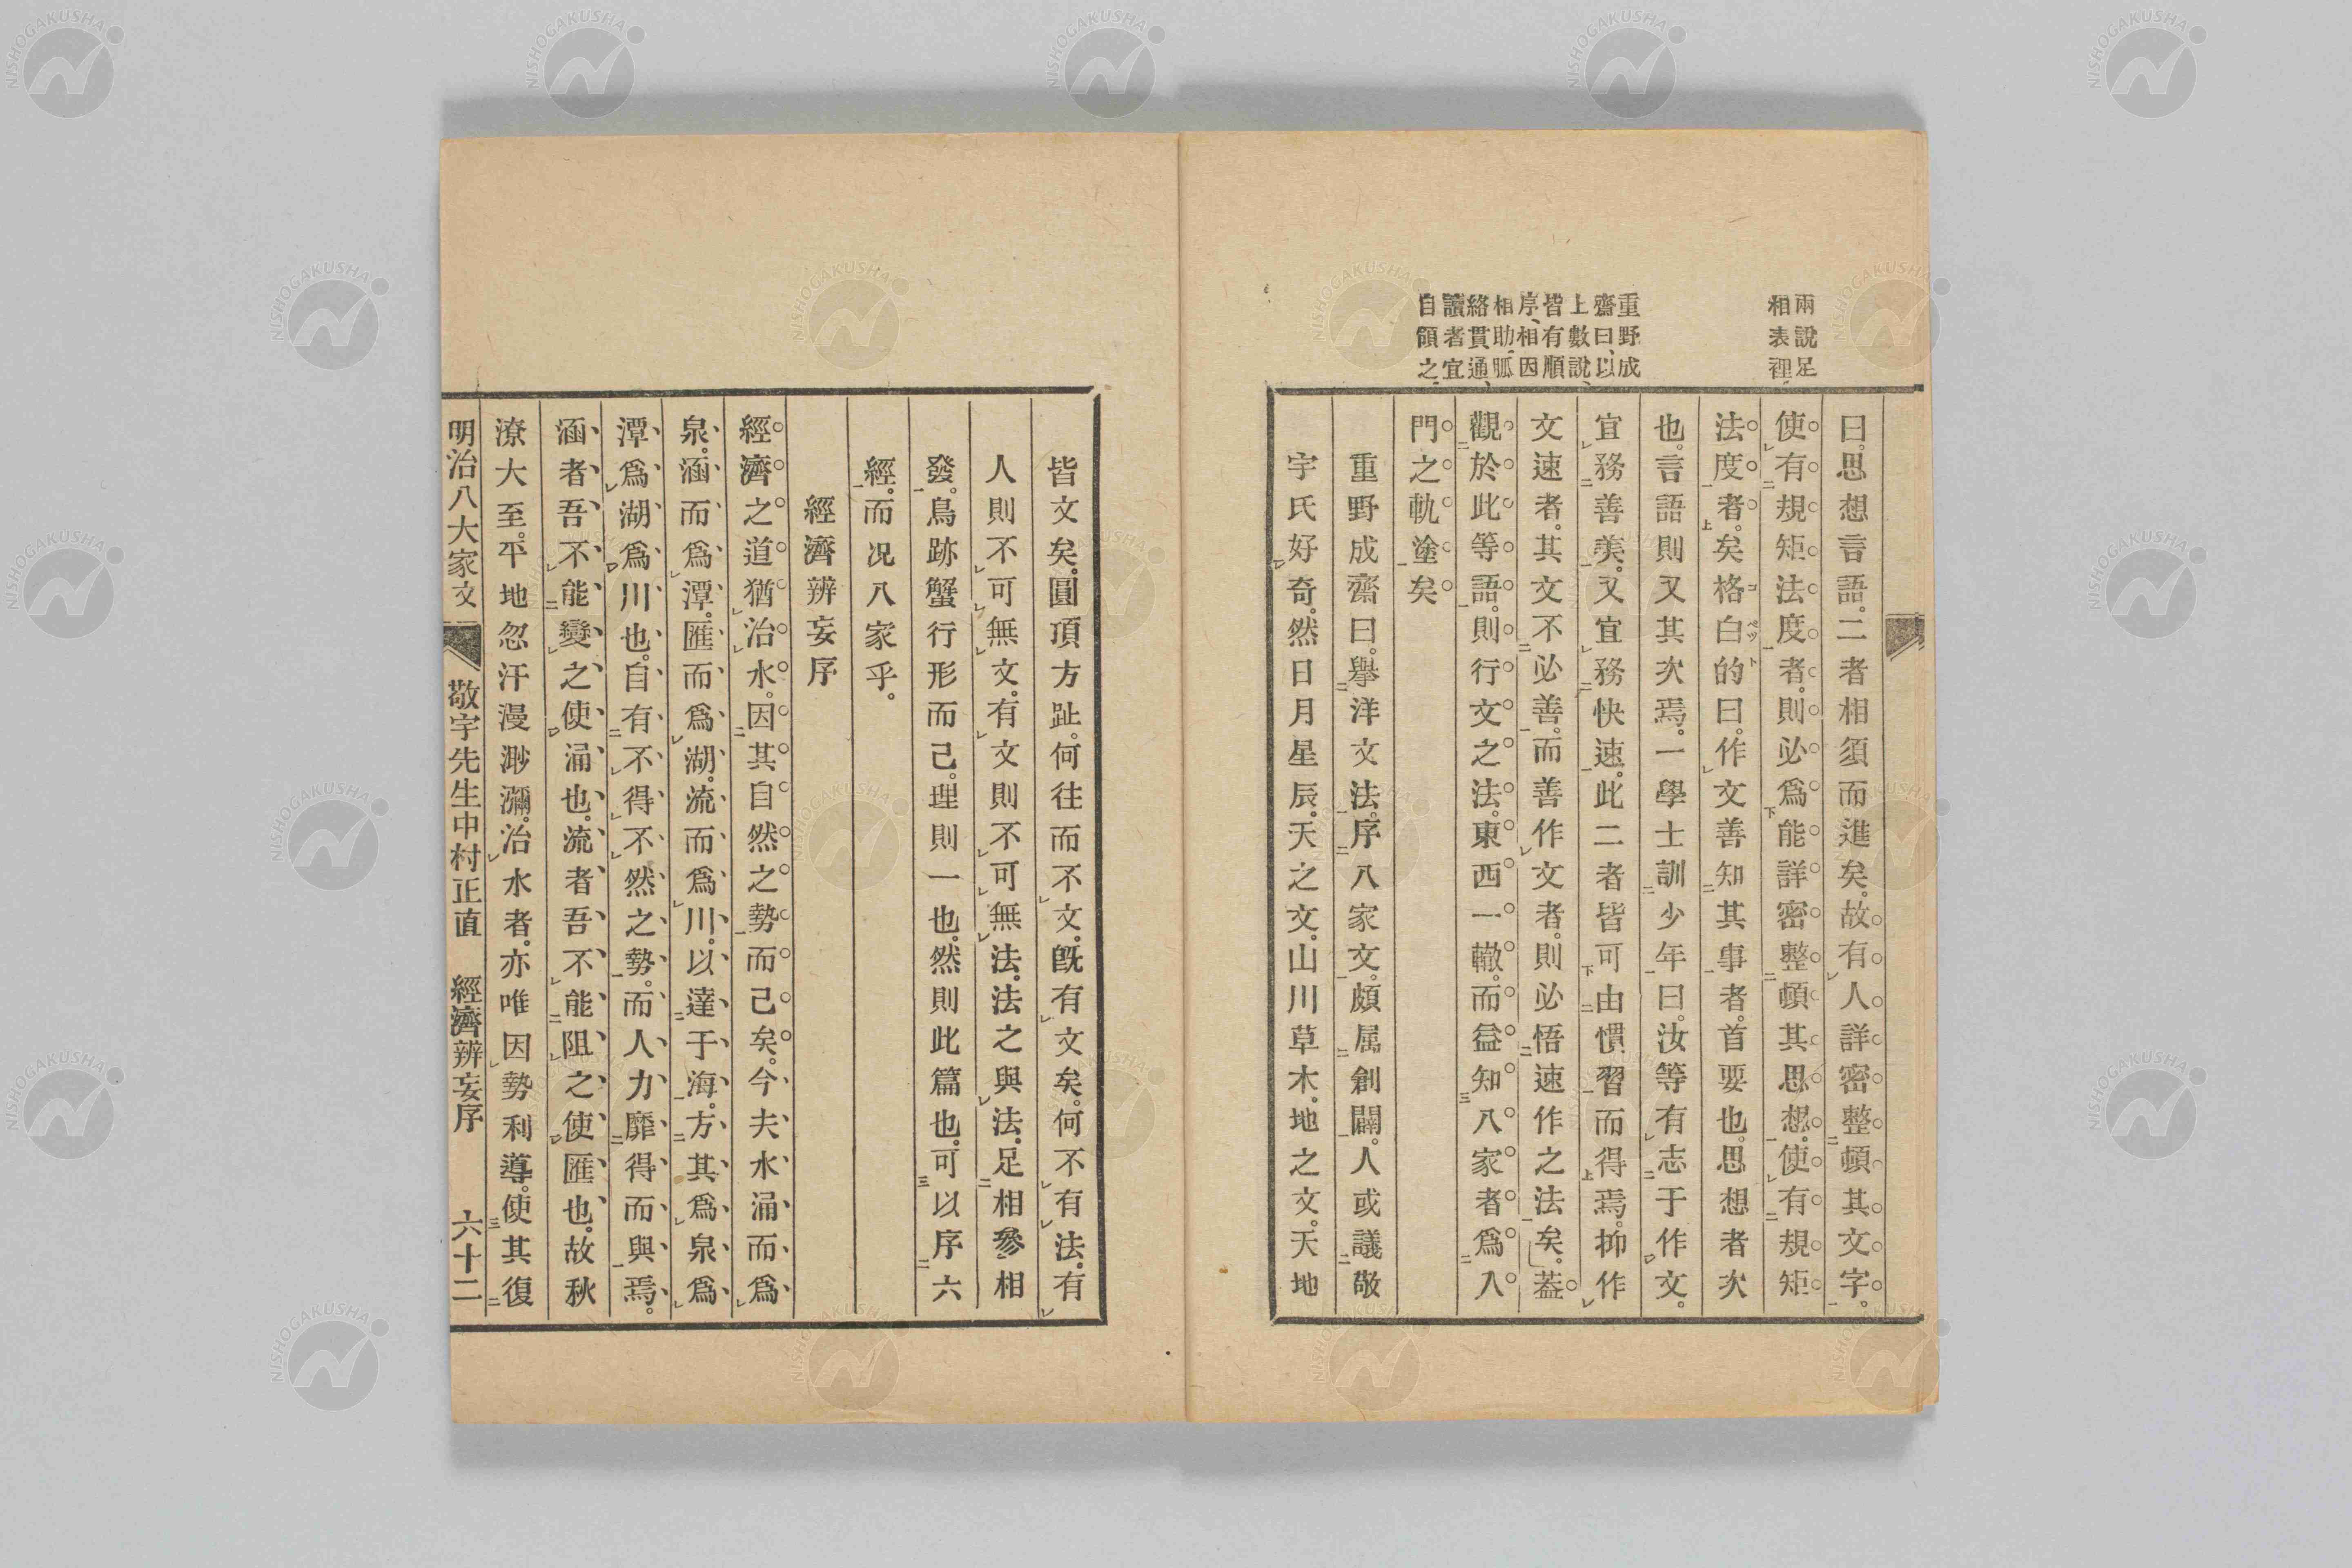 兩說足
相表裡
重野成
齋曰、以
上數說、
皆有順
序、相因
相助、脈
絡貫通、
讀者宜
自領之、
曰。思想言語。二者相須而進矣。故有人詳密整頓其文字。
使有規矩法度者。則必爲能詳密整頓其思想。使有規矩
法度者。矣格白的曰。作文善知其事者。首要也。思想者次
也。言語則又其次焉。一學士訓少年曰。汝等有志于作文。
宜務善美。又宜務快速。此二者皆可由慣習而得焉。抑作
文速者。其文不必善。而善作文者。則必悟速作之法矣。蓋
觀於此等語。則行文之法。東西一轍。而益知八家者爲入
門之軌塗矣
重野成齋曰。舉洋文法。序八家文。頗属創闢。人或議敬
宇氏好奇。然日月星辰。天之文。山川草木。地之文。天地
皆文矣。圓頂方趾。何往而不文。旣有文矣。何不有法。有
人則不可無文。有文則不可無法。法之與法。足相參相
發。鳥跡蟹行形而已。理則一也。然則此篇也。可以序六
經。而况八家乎。
經濟辨妄序
經濟之道猶治水。因其自然之勢而已矣。今夫水涌而爲
泉。涵而爲潭。匯而爲湖。流而爲川。以達于海。方其爲泉爲
潭爲湖爲川也。自有不得不然之勢。而人力靡得而與焉。
涵者吾不能變之使涌也。流者吾不能阻之使匯也。故秋
潦大至。平地忽汗漫渺瀰。治水者。亦唯因勢利導。使其復
明治八大家文 敬宇先生中村正直 經濟辨妄序 六十二